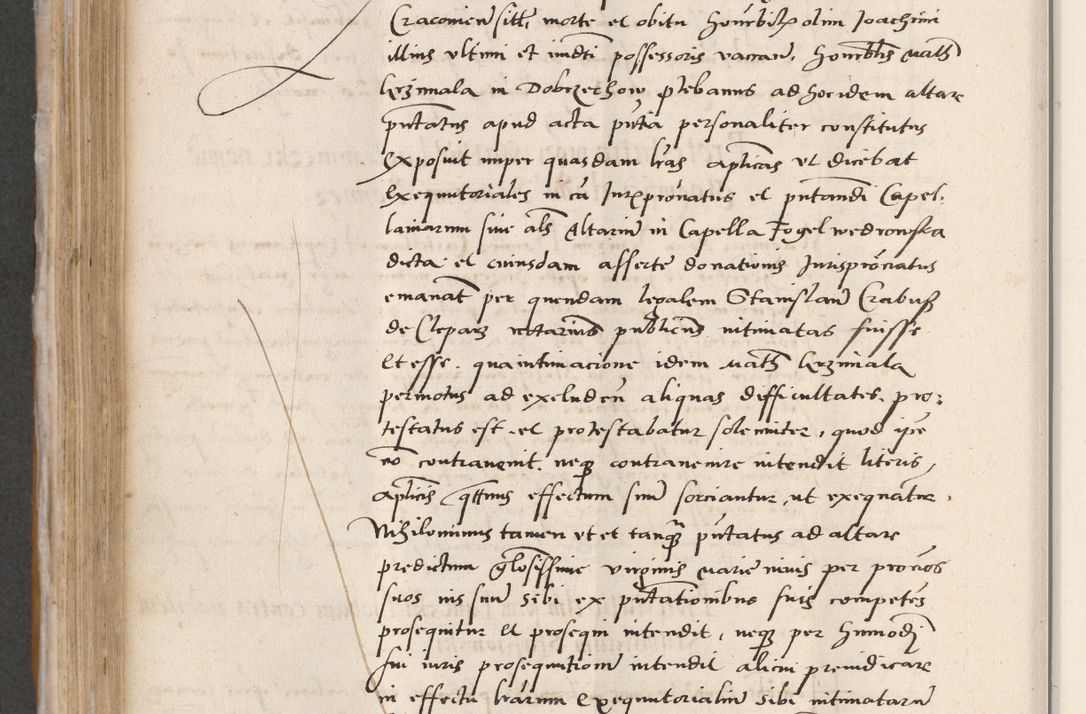 Cracovien sitti, morte et obitu honorbilis olim Joachimi
illius ultimi et imdti possessoris vacan, honorblis Math
Krzimala in Dobrzechow plebanus ad hocidem altare
pntatus apud acta pntia personaliter constitutus
Exposuit nuper quasdam lras aplicas ut dicebat
Exequutoriales in ca Jurispronatus et pntandi Capel,
laniarum sive als Altariu in Capella Fogelwedrowska
dicta et cuiusdam asserte donationis Jurispronatus
emanat per quendam legalem Stanislau Crabus
de Clepar notariu publicu intimatas fuisse
Et esse, qua intimacione idem Math Krzimala
permotus ad excluden aliquas difficultates, pro,
testatus est et protestabatur solemniter, quod ipse
no contravenit, neq contravenire intendit literis,
aplicis qttinus effectum suu sorciantur ut exequatur,
Nihilominus tamen ut et tanq pntatus ad altare
predictum glosissime virginis Marie nivis per procios
suos ius suu sibi ex pntationibus suis competes
prosequitur et prosequi intendit, neq per hmmodi
sui iuris prosequutione intendit alicui preiudicare
in effectu lrarum Exequutorialiu sibi intimataru